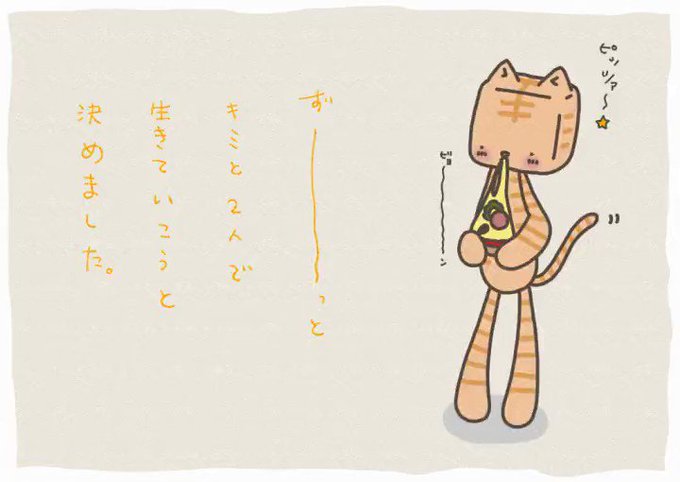 ピッツァ〜
ビョーーーーン
ずーーーーっと
キミと2人で
生きていこうと
決めました。